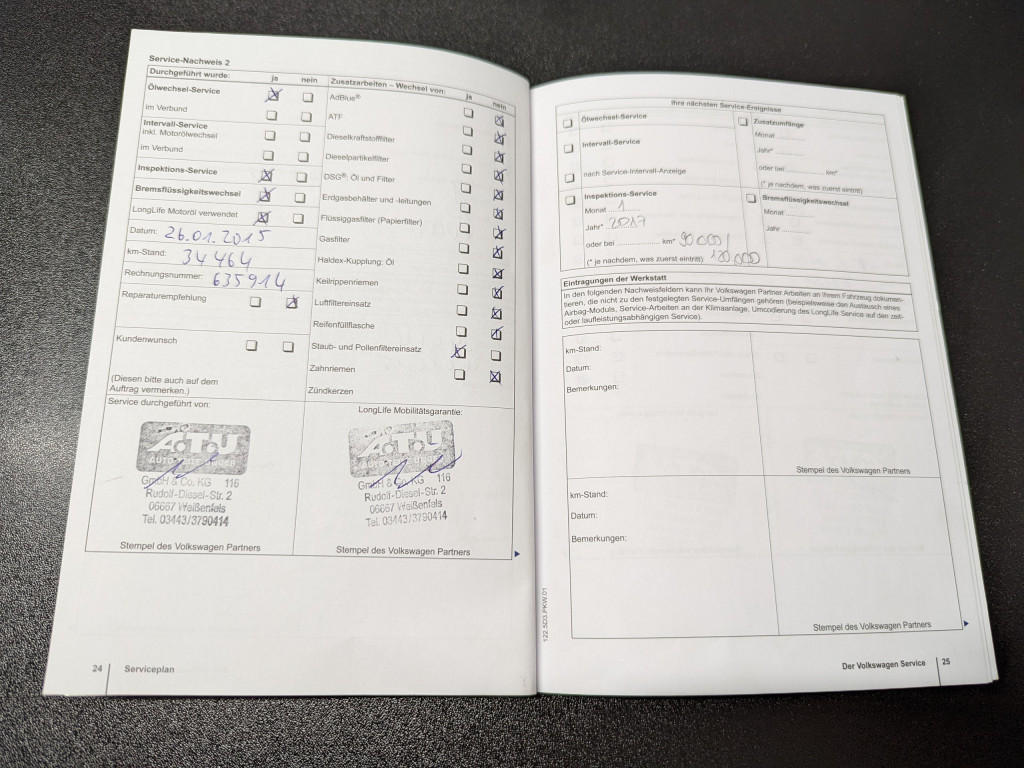 Service-Nachweis 2
Durchgeführt wurde: ja nein
Ölwechsel-Service
im Verbund
Intervall-Service
inkl. Motorölwechsel
im Verbund
Inspektions-Service
Bremsflüssigkeitswechsel
LongLife Motoröl verwendet
Datum: 26.01.2015
km-Stand: 34464
Rechnungsnummer: 635914
Reparaturempfehlung
Kundenwunsch
(Diesen bitte auch auf dem
Auftrag vermerken.)
Zusatzarbeiten – Wechsel von: ja nein
AdBlue®
ATF
Dieselkraftstofffilter
Dieselpartikelfilter
DSG®: Öl und Filter
Erdgasbehälter und -leitungen
Flüssiggasfilter (Papierfilter)
Gasfilter
Haldex-Kupplung: Öl
Keilrippenriemen
Luftfiltereinsatz
Reifenfüllflasche
Staub- und Pollenfiltereinsatz
Zahnriemen
Zündkerzen
Service durchgeführt von:
A.T.U
GmbH & Co. KG 116
Rudolf-Diesel-Str. 2
06667 Weißenfels
Tel. 03443/3790414
Stempel des Volkswagen Partners
LongLife Mobilitätsgarantie:
A.T.U
GmbH & Co. KG 116
Rudolf-Diesel-Str. 2
06667 Weißenfels
Tel. 03443/3790414
Stempel des Volkswagen Partners
24 Serviceplan
Ihre nächsten Service-Ereignisse
Ölwechsel-Service
Intervall-Service
nach Service-Intervall-Anzeige
Inspektions-Service
Monat 1
Jahr* 2017
oder bei km* 90000/
(* je nachdem, was zuerst eintritt) 120000
Zusatzumfänge
Monat
Jahr*
oder bei km*
(* je nachdem, was zuerst eintritt)
Bremsflüssigkeitswechsel
Monat
Jahr
Eintragungen der Werkstatt
In den folgenden Nachweisfeldern kann Ihr Volkswagen Partner Arbeiten an Ihrem Fahrzeug dokumen-
tieren, die nicht zu den festgelegten Service-Umfängen gehören (beispielsweise den Austausch eines
Airbag-Moduls, Service-Arbeiten an der Klimaanlage, Umcodierung des LongLife Service auf den zeit-
oder laufleistungsabhängigen Service).
km-Stand:
Datum:
Bemerkungen:
Stempel des Volkswagen Partners
km-Stand:
Datum:
Bemerkungen:
Stempel des Volkswagen Partners
122.5D3.PKW.01
Der Volkswagen Service 25